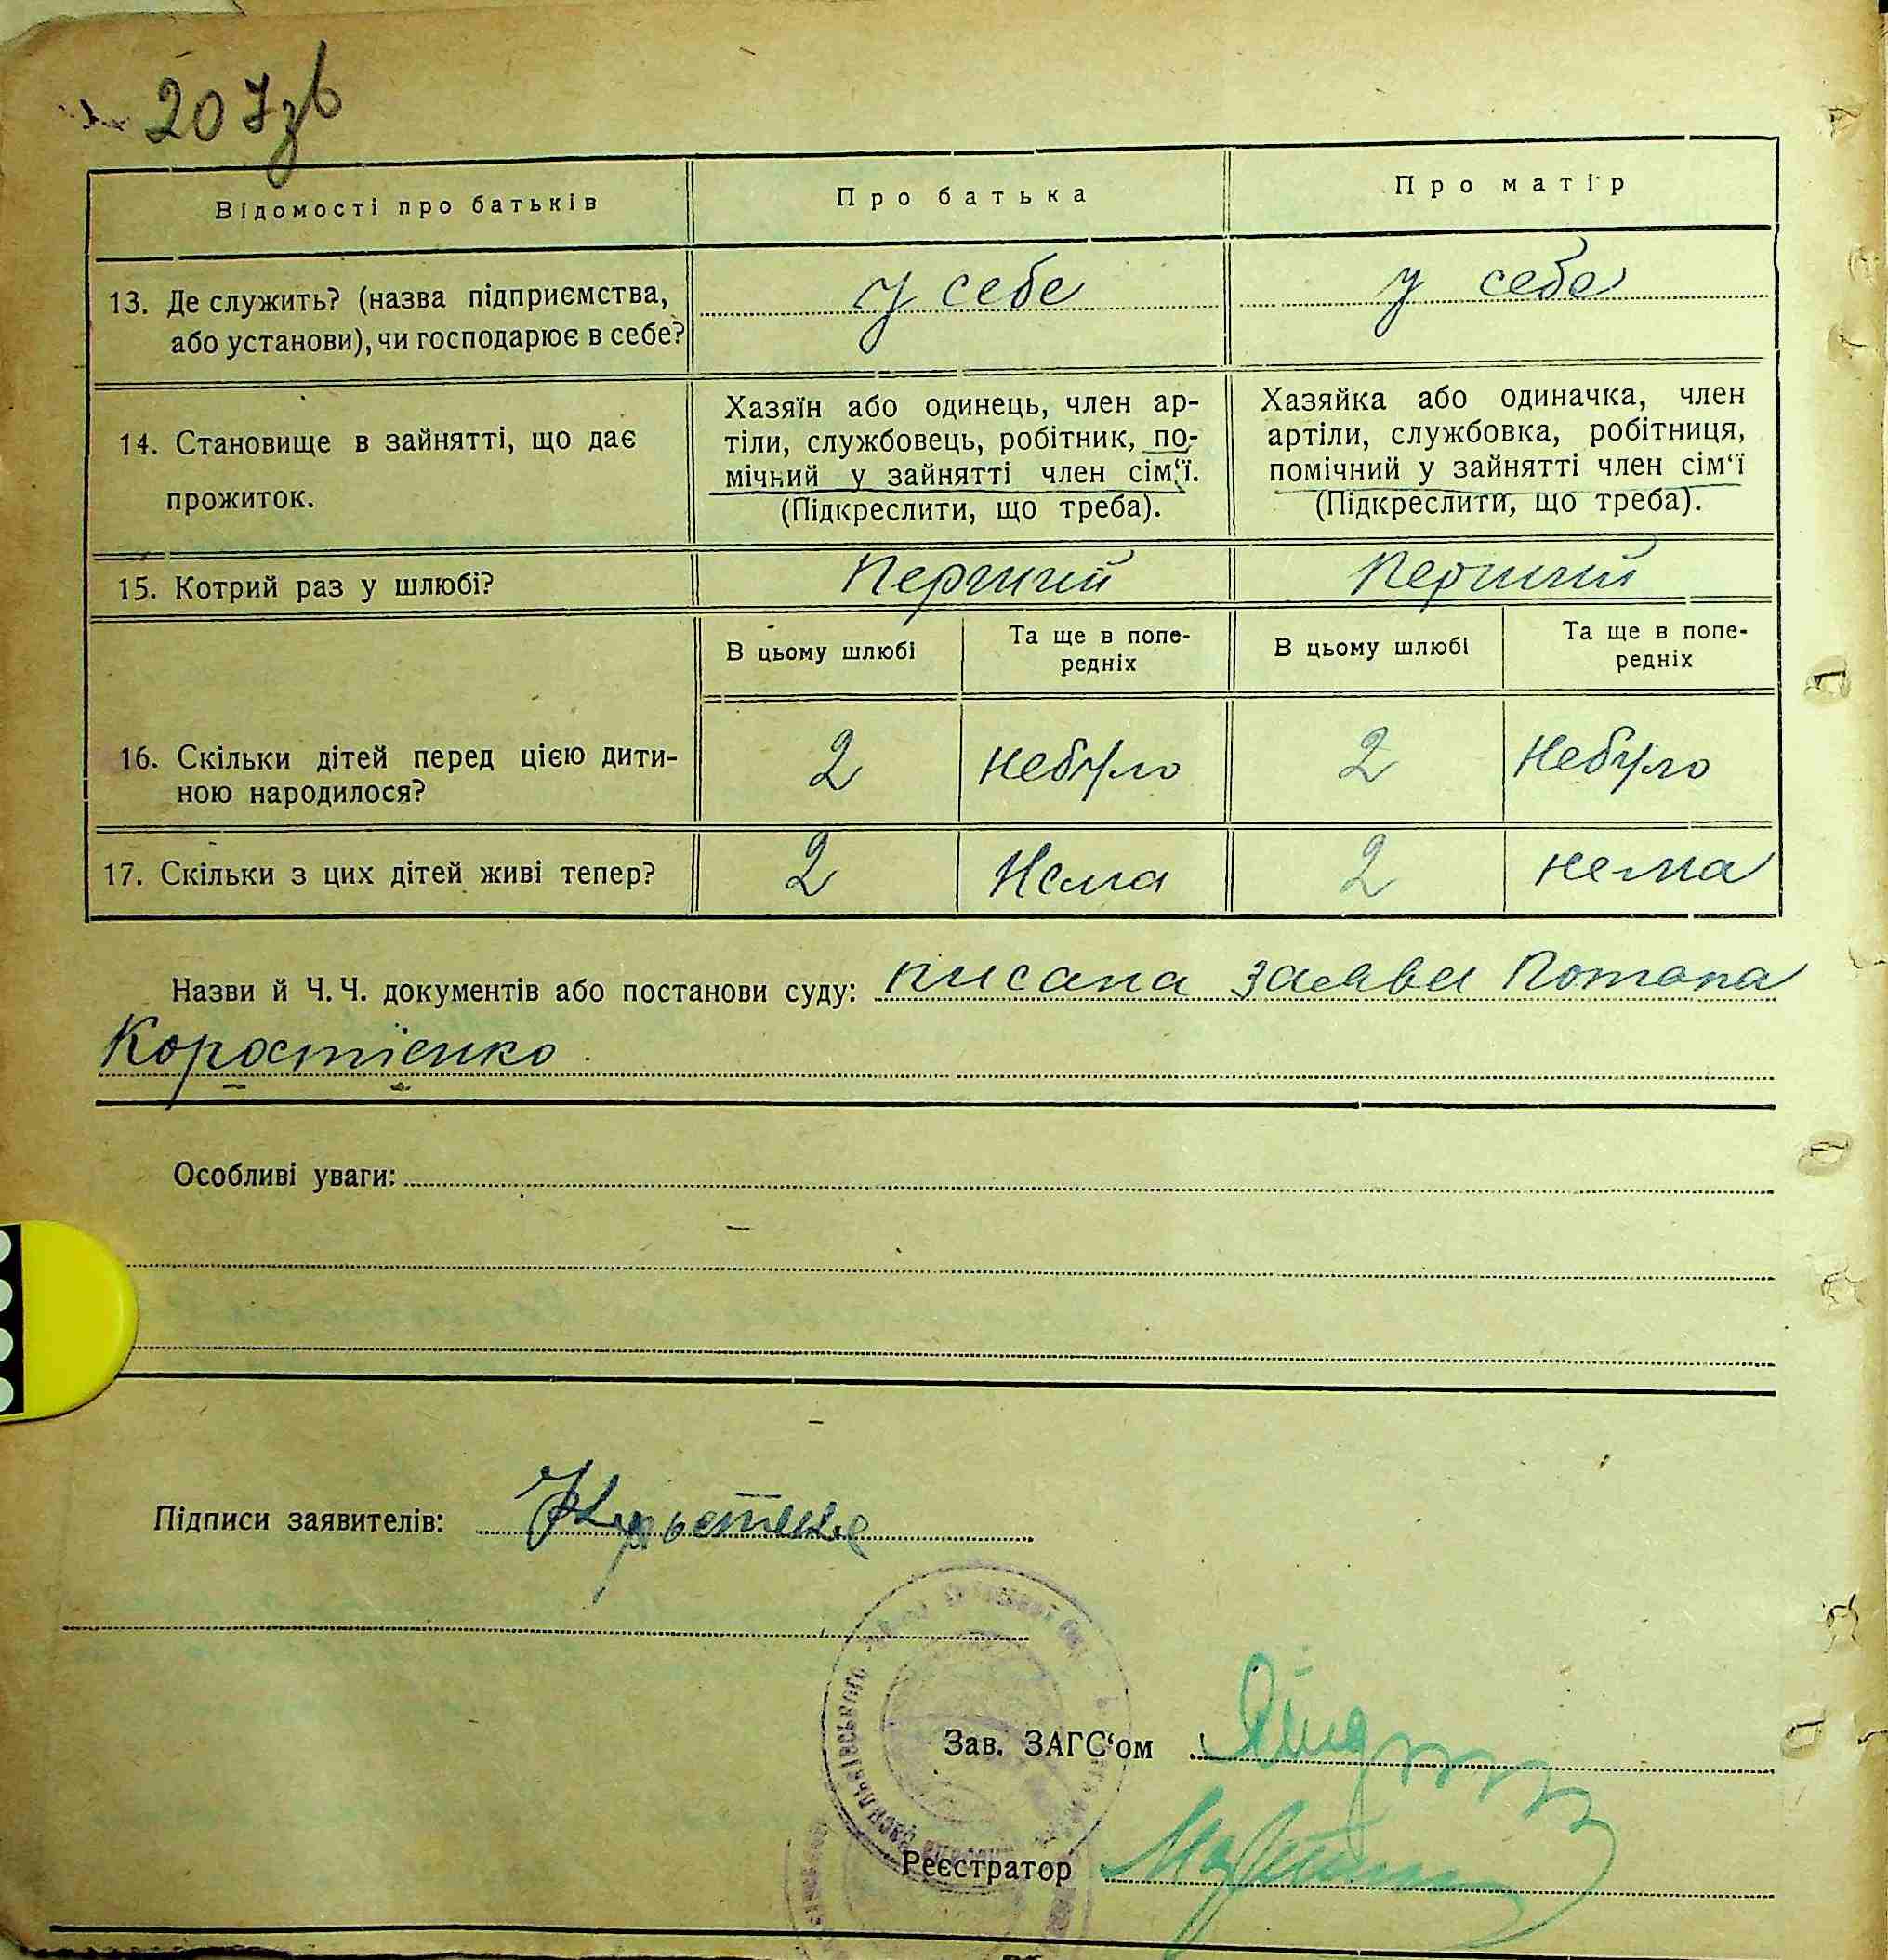 207зв
Відомості про батьків
Про батька
Про матір
13. Де служить? (назва підприємства,
або установи), чи господарює в себе?
у себе
у себе
14. Становище в зайнятті, що дає
прожиток.
Хазяїн або одинець, член ар-
тіли, службовець, робітник, по-
мічний у зайнятті член сім‘ї.
(Підкреслити, що треба).
Хазяйка або одиначка, член
артіли, службовка, робітниця,
помічний у зайнятті член сім‘ї
(Підкреслити, що треба).
15. Котрий раз у шлюбі?
Перший
Перший
В цьому шлюбі
Та ще в попе-
редніх
В цьому шлюбі
Та ще в попе-
редніх
16. Скільки дітей перед цією дити-
ною народилося?
2
небуло
2
Небуло
17. Скільки з цих дітей живі тепер?
2
Нема
2
нема
Назви й Ч. Ч. документів або постанови суду: писана заява Потапа
Коростієнко
Особливі уваги:
Підписи заявителів:
Зав. ЗАГС‘ом
Реєстратор